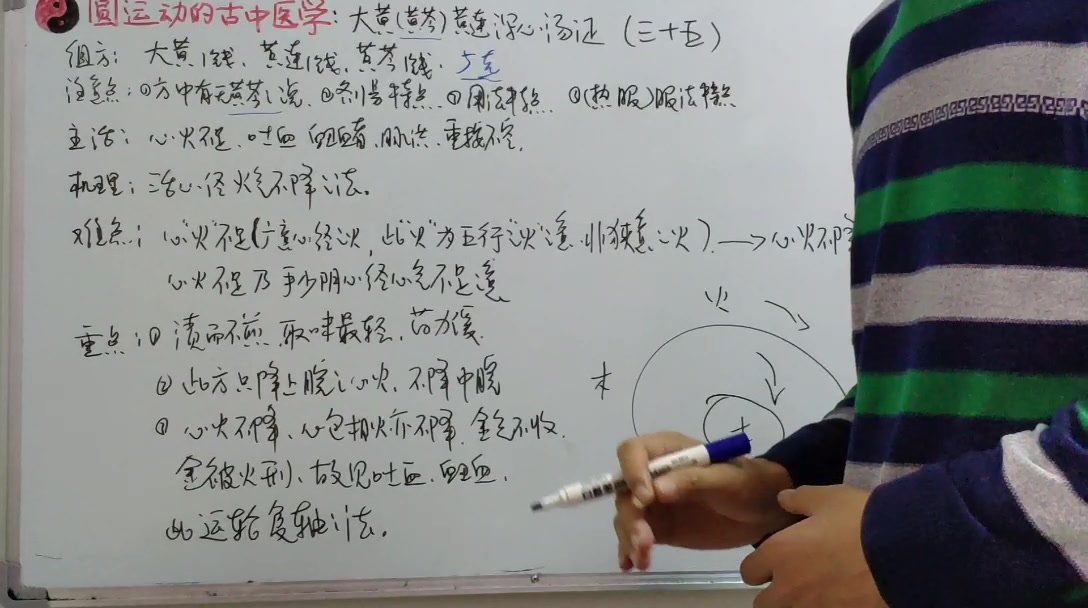 圆运动的古中医学：大黄(黄芩)黄连泻心汤证（三十五）
组方：大黄1钱、黄连1钱、黄芩1钱.
注意点：①方中有无黄芩之说 ②剂量特点 ③用法特点 ④(热服)服法特点
主治：心火不足、吐血 衄血者、脉洪、重按不空.
机理：治心经火气不降之法。
难点：心"火"不足(六意心经火，此"火"为五行"火"意.非狭意之火) → 心火不降
心火不足乃手少阴心经心气不足意
重点：① 渍而不煎，取味最轻，药力缓.
② 此方只降上脘之心火、不降中脘
③ 心火不降、心包相火亦不降、金气不收.
金被火刑、故见吐血、衄血.
此运轮复轴之法.
火
木
土